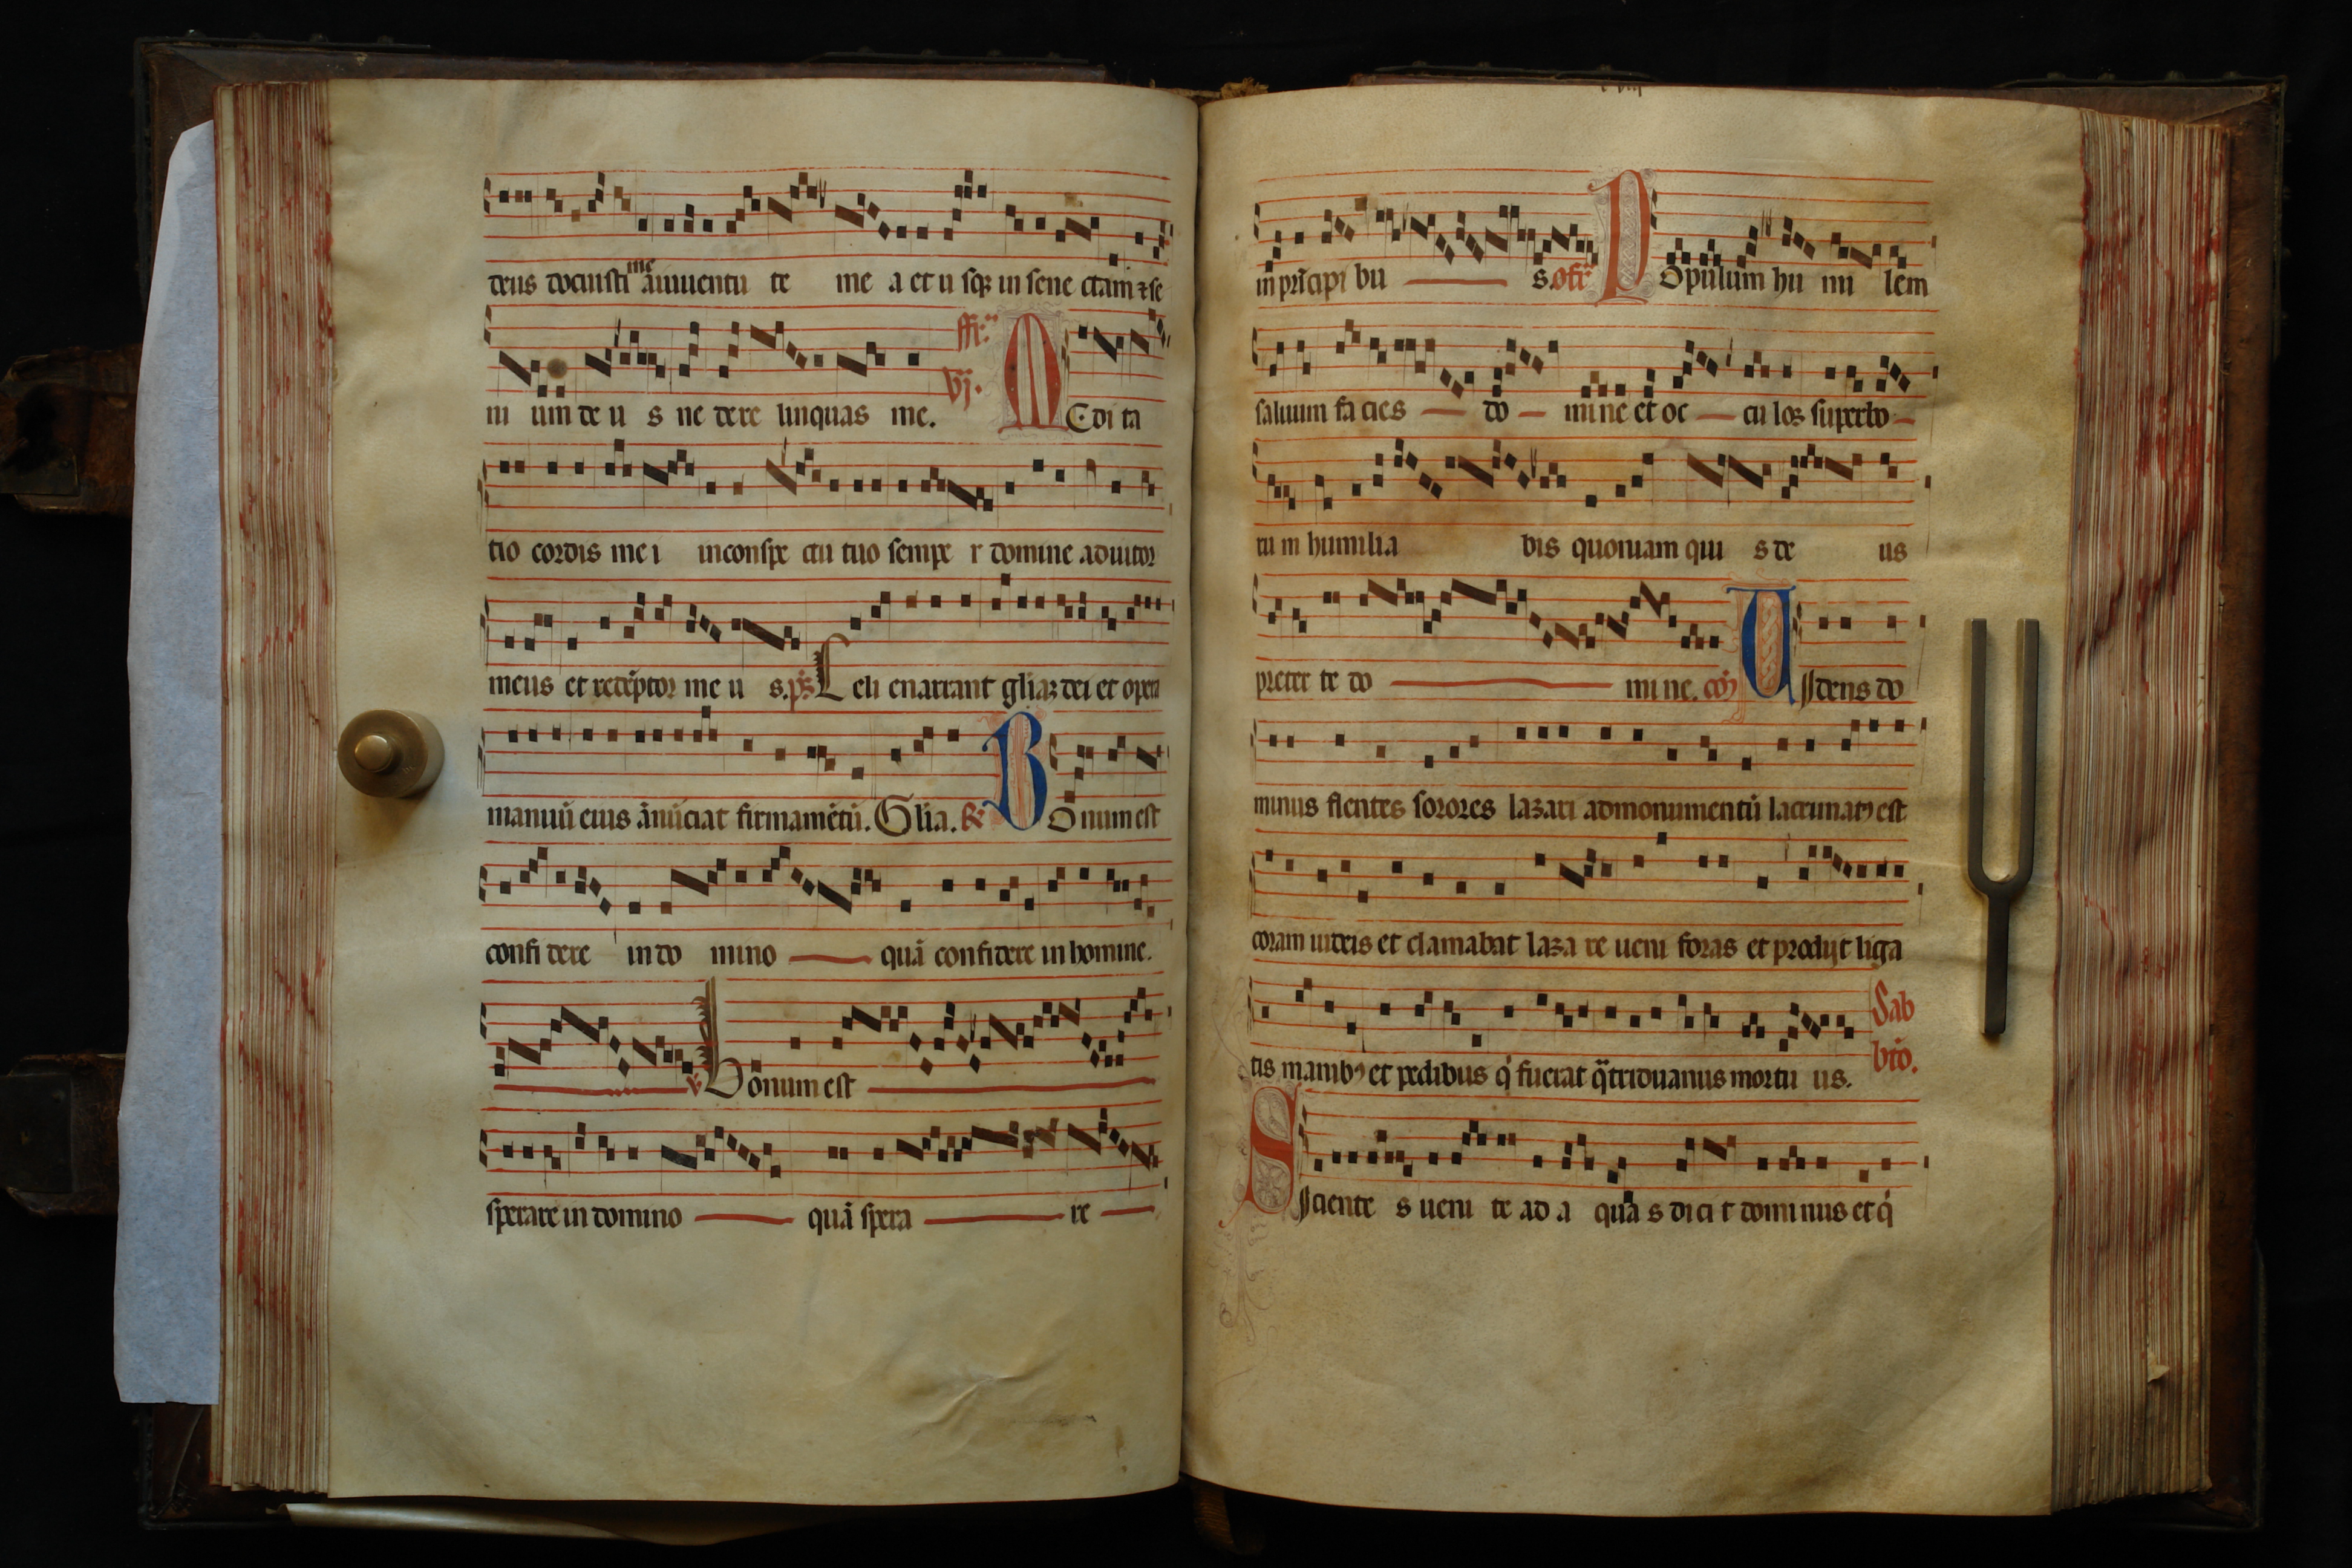 deus docuisti me a iuuentu te me a et u sqꝫ in sene ctam ⁊ se
ni um de u s ne dere linquas me. ffr. vj. MEdi ta
tio cordis me i inconspe ctu tuo sempe r domine adiutor
meus et redēptor me u s. ps. Celi enarrant gliaꝫ dei et opera
manuū eius ānūciat firmamētū. Glia. Bonum est
confi dere in do mino quā confidere in homine.
v. Bonum est
sperare in domino quā spera re
in prīcipi bu s. ofr. Populum hu mi lem
saluum fa cies do mi ne et oc cu los superbo
ru m humilia bis quoniam qui s de us
preter te do mi ne. cō Uidens do
minus flentes sorores lazari ad monumentū lacrimatꝰ est
coram iudeis et clamabat laza re ueni foras et prodijt liga
tis manibꝰ et pedibus q̇ fuerat q̄triduanus mortu us. Sab
bto.
Sciente s ueni te ad a qua s dici t domi nus et q̇